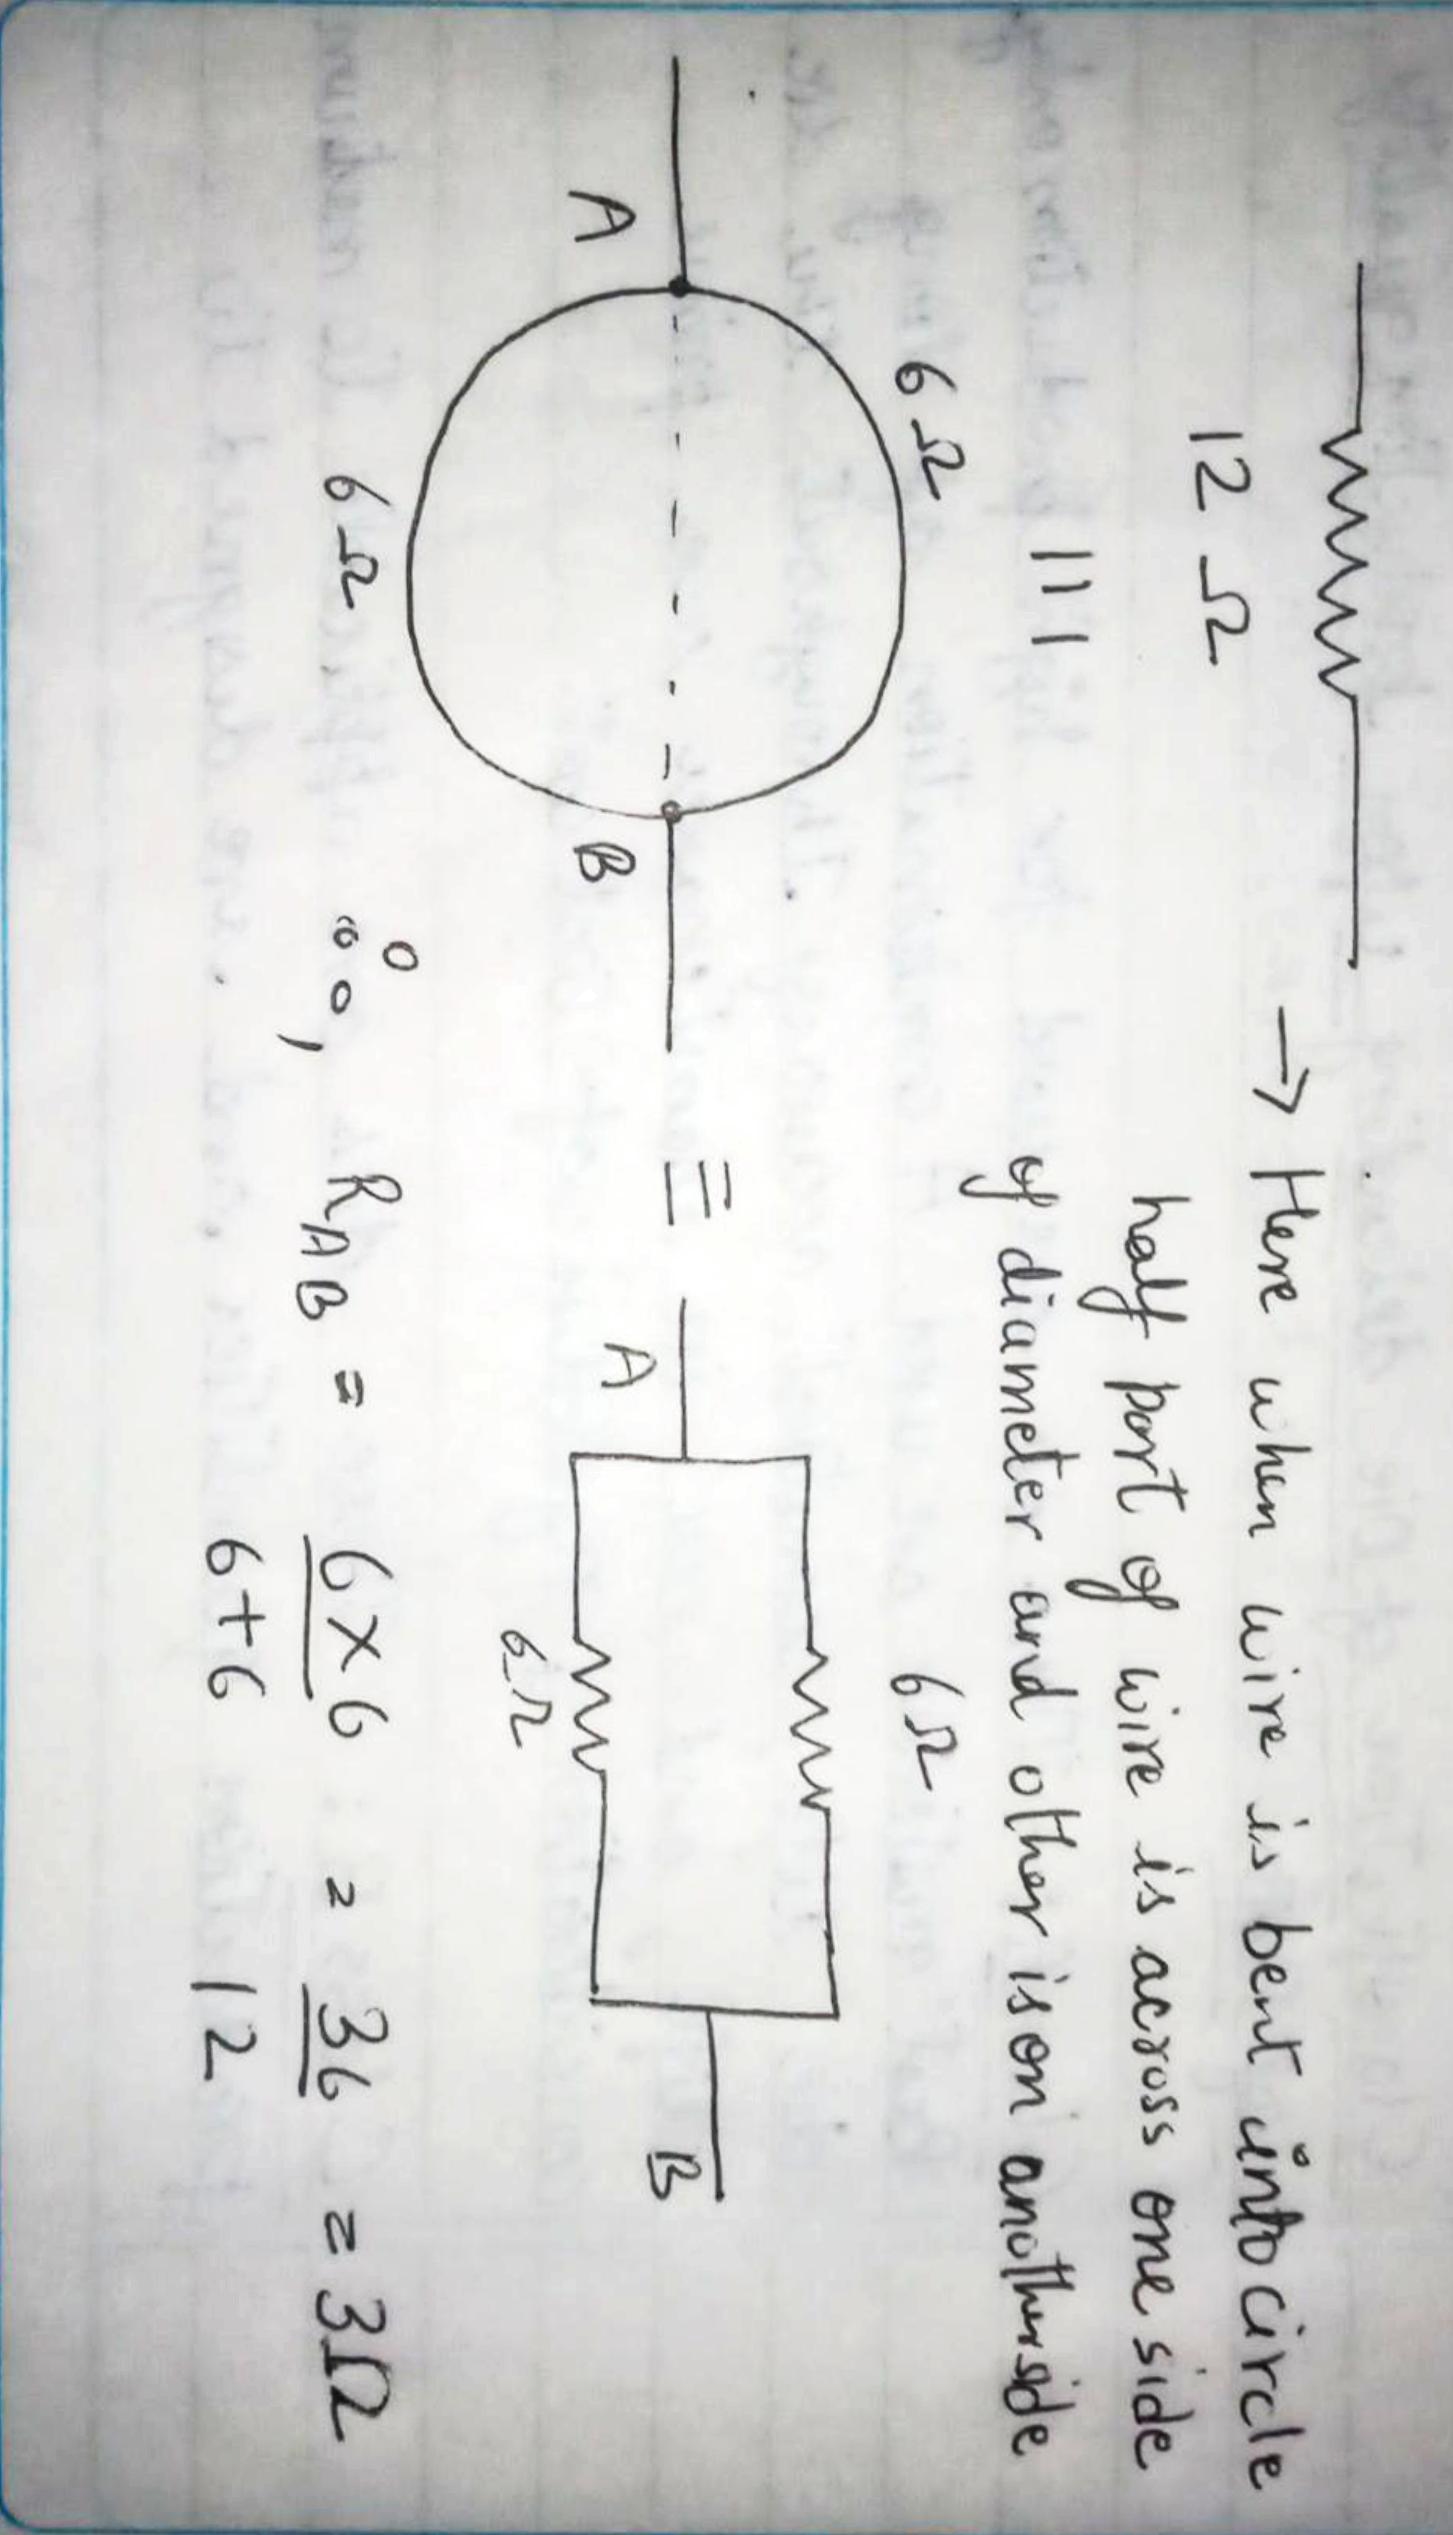 12 Ω
→ Here when wire is bent into circle
half part of wire is across one side
of diameter and other is on another side
≡
6 Ω
A
B
6 Ω
≡
6 Ω
A
B
6 Ω
∴, R_AB = 6×6 / 6+6 = 36 / 12 = 3Ω